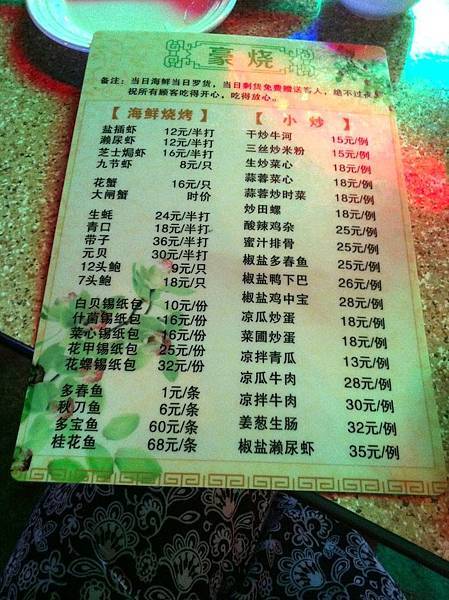 豪烧
备注：当日海鲜当日罗货，当日剩货免费赠送客人，绝不过夜，
祝所有顾客吃得开心，吃得放心。
【海鲜烧烤】
盐插虾 12元/半打
濑尿虾 12元/半打
芝士焗虾 16元/半打
九节虾 8元/只
花蟹 16元/只
大闸蟹 时价
生蚝 24元/半打
青口 18元/半打
带子 36元/半打
元贝 30元/半打
12头鲍 9元/只
7头鲍 18元/只
白贝锡纸包 10元/份
什菌锡纸包 16元/份
菜心锡纸包 16元/份
花甲锡纸包 25元/份
花螺锡纸包 32元/份
多春鱼 1元/条
秋刀鱼 6元/条
多宝鱼 60元/条
桂花鱼 68元/条
【小炒】
干炒牛河 15元/例
三丝炒米粉 15元/例
生炒菜心 18元/例
蒜蓉菜心 18元/例
蒜蓉炒时菜 18元/例
炒田螺 18元/例
酸辣鸡杂 25元/例
蜜汁排骨 25元/例
椒盐多春鱼 25元/例
椒盐鸭下巴 26元/例
椒盐鸡中宝 28元/例
凉瓜炒蛋 18元/例
菜圃炒蛋 18元/例
凉拌青瓜 13元/例
凉瓜牛肉 28元/例
凉拌牛肉 30元/例
姜葱生肠 32元/例
椒盐濑尿虾 35元/例